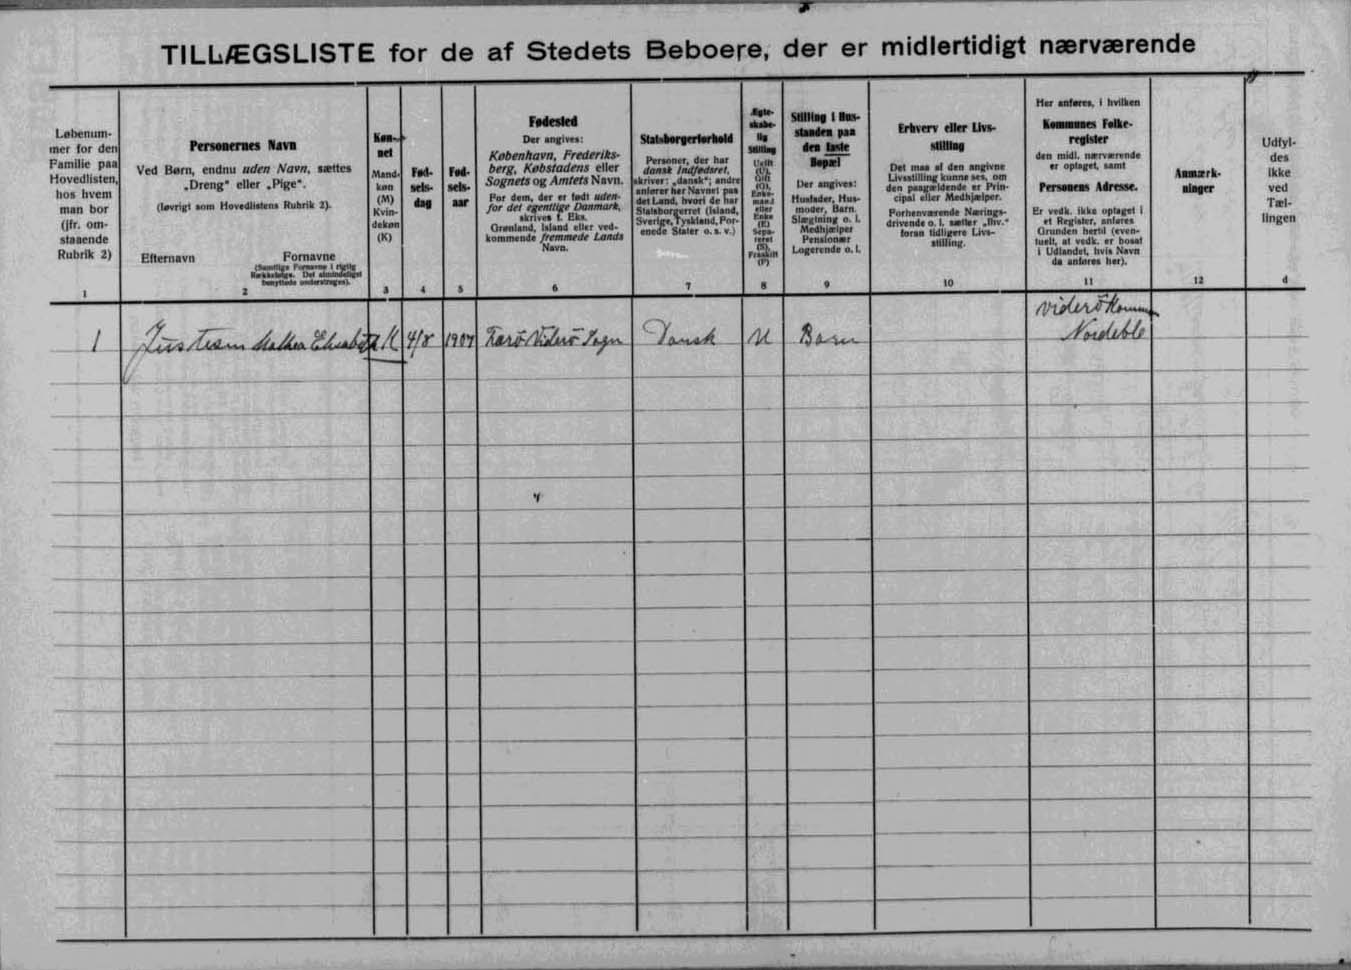 TILLÆGSLISTE for de af Stedets Beboere, der er midlertidigt nærværende
Løbenum-
mer for den
Familie paa
Hovedlisten,
hos hvem
man bor
(jfr. om-
staaende
Rubrik 2)
1
Personernes Navn
Ved Børn, endnu uden Navn, sættes
„Dreng“ eller „Pige“.
(Iøvrigt som Hovedlistens Rubrik 2).
Efternavn
Fornavne
(Samtlige Fornavne i rigtig
Rækkefølge. Det almindeligst
benyttede understreges).
2
Køn-
net
Mand-
køn
(M)
Kvin-
dekøn
(K)
3
Fød-
sels-
dag
4
Fød-
sels-
aar
5
Fødested
Der angives:
København, Frederiks-
berg, Købstadens eller
Sognets og Amtets Navn.
For dem, der er født uden-
for det egentlige Danmark,
skrives f. Eks.
Grønland, Island eller ved-
kommende fremmede Lands
Navn.
6
Statsborgerforhold
Personer, der har
dansk Indfødsret,
skriver: „dansk“; andre
anfører her Navnet paa
det Land, hvori de har
Statsborgerret (Island,
Sverige, Tyskland, For-
enede Stater o. s. v.)
7
Ægte-
skabe-
lig
Stilling
Ugift
(U),
Gift
(G),
Enke-
mand
eller
Enke
(E)
Sepa-
reret
(S),
Fraskilt
(F)
8
Stilling i Hus-
standen paa
den faste
Bopæl
Der angives:
Husfader, Hus-
moder, Barn,
Slægtning o. l.
Medhjælper
Pensionær
Logerende o. l.
9
Erhverv eller Livs-
stilling
Det maa af den angivne
Livsstilling kunne ses, om
den paagældende er Prin-
cipal eller Medhjælper.
Forhenværende Nærings-
drivende o. l. sætter „fhv.“
foran tidligere Livs-
stilling.
10
Her anføres, i hvilken
Kommunes Folke-
register
den midl. nærværende
er optaget, samt
Personens Adresse.
Er vedk. ikke optaget i
et Register, anføres
Grunden hertil (even-
tuelt, at vedk. er bosat
i Udlandet, hvis Navn
da anføres her).
11
Anmærk-
ninger
12
Udfyl-
des
ikke
ved
Tæl-
lingen
d
1 Elisabeth K 4/8 1907 Færö Viderö Sogn Dansk U Barn Viderö Kommun